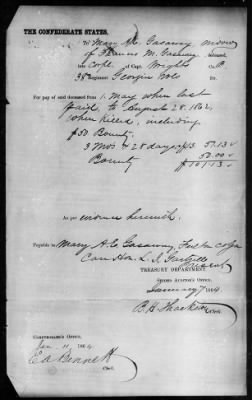 THE CONFEDERATE STATES,
To Mary A. E. Gasaway widow
of Francis M. Gasaway Deceased
late Corpl of Capt. Wright's Co. B
38th Regiment Georgia Vols Dr.
For pay of said deceased from 1. May when last
paid, to August 28. 1862,
when killed, including
$50 Bounty.
3 Mos & 28 days @ $13 51.13
Bounty 50.00
$101.13
As per evidence herewith.
Payable to Mary A. E. Gasaway,
Care Hon. L. J. Gartrell
Present
TREASURY DEPARTMENT,
SECOND AUDITOR'S OFFICE,
January 7 1864
Clerk.
COMPTROLLER'S OFFICE,
Jan. 11, 1864
E A Bennett
Clerk.